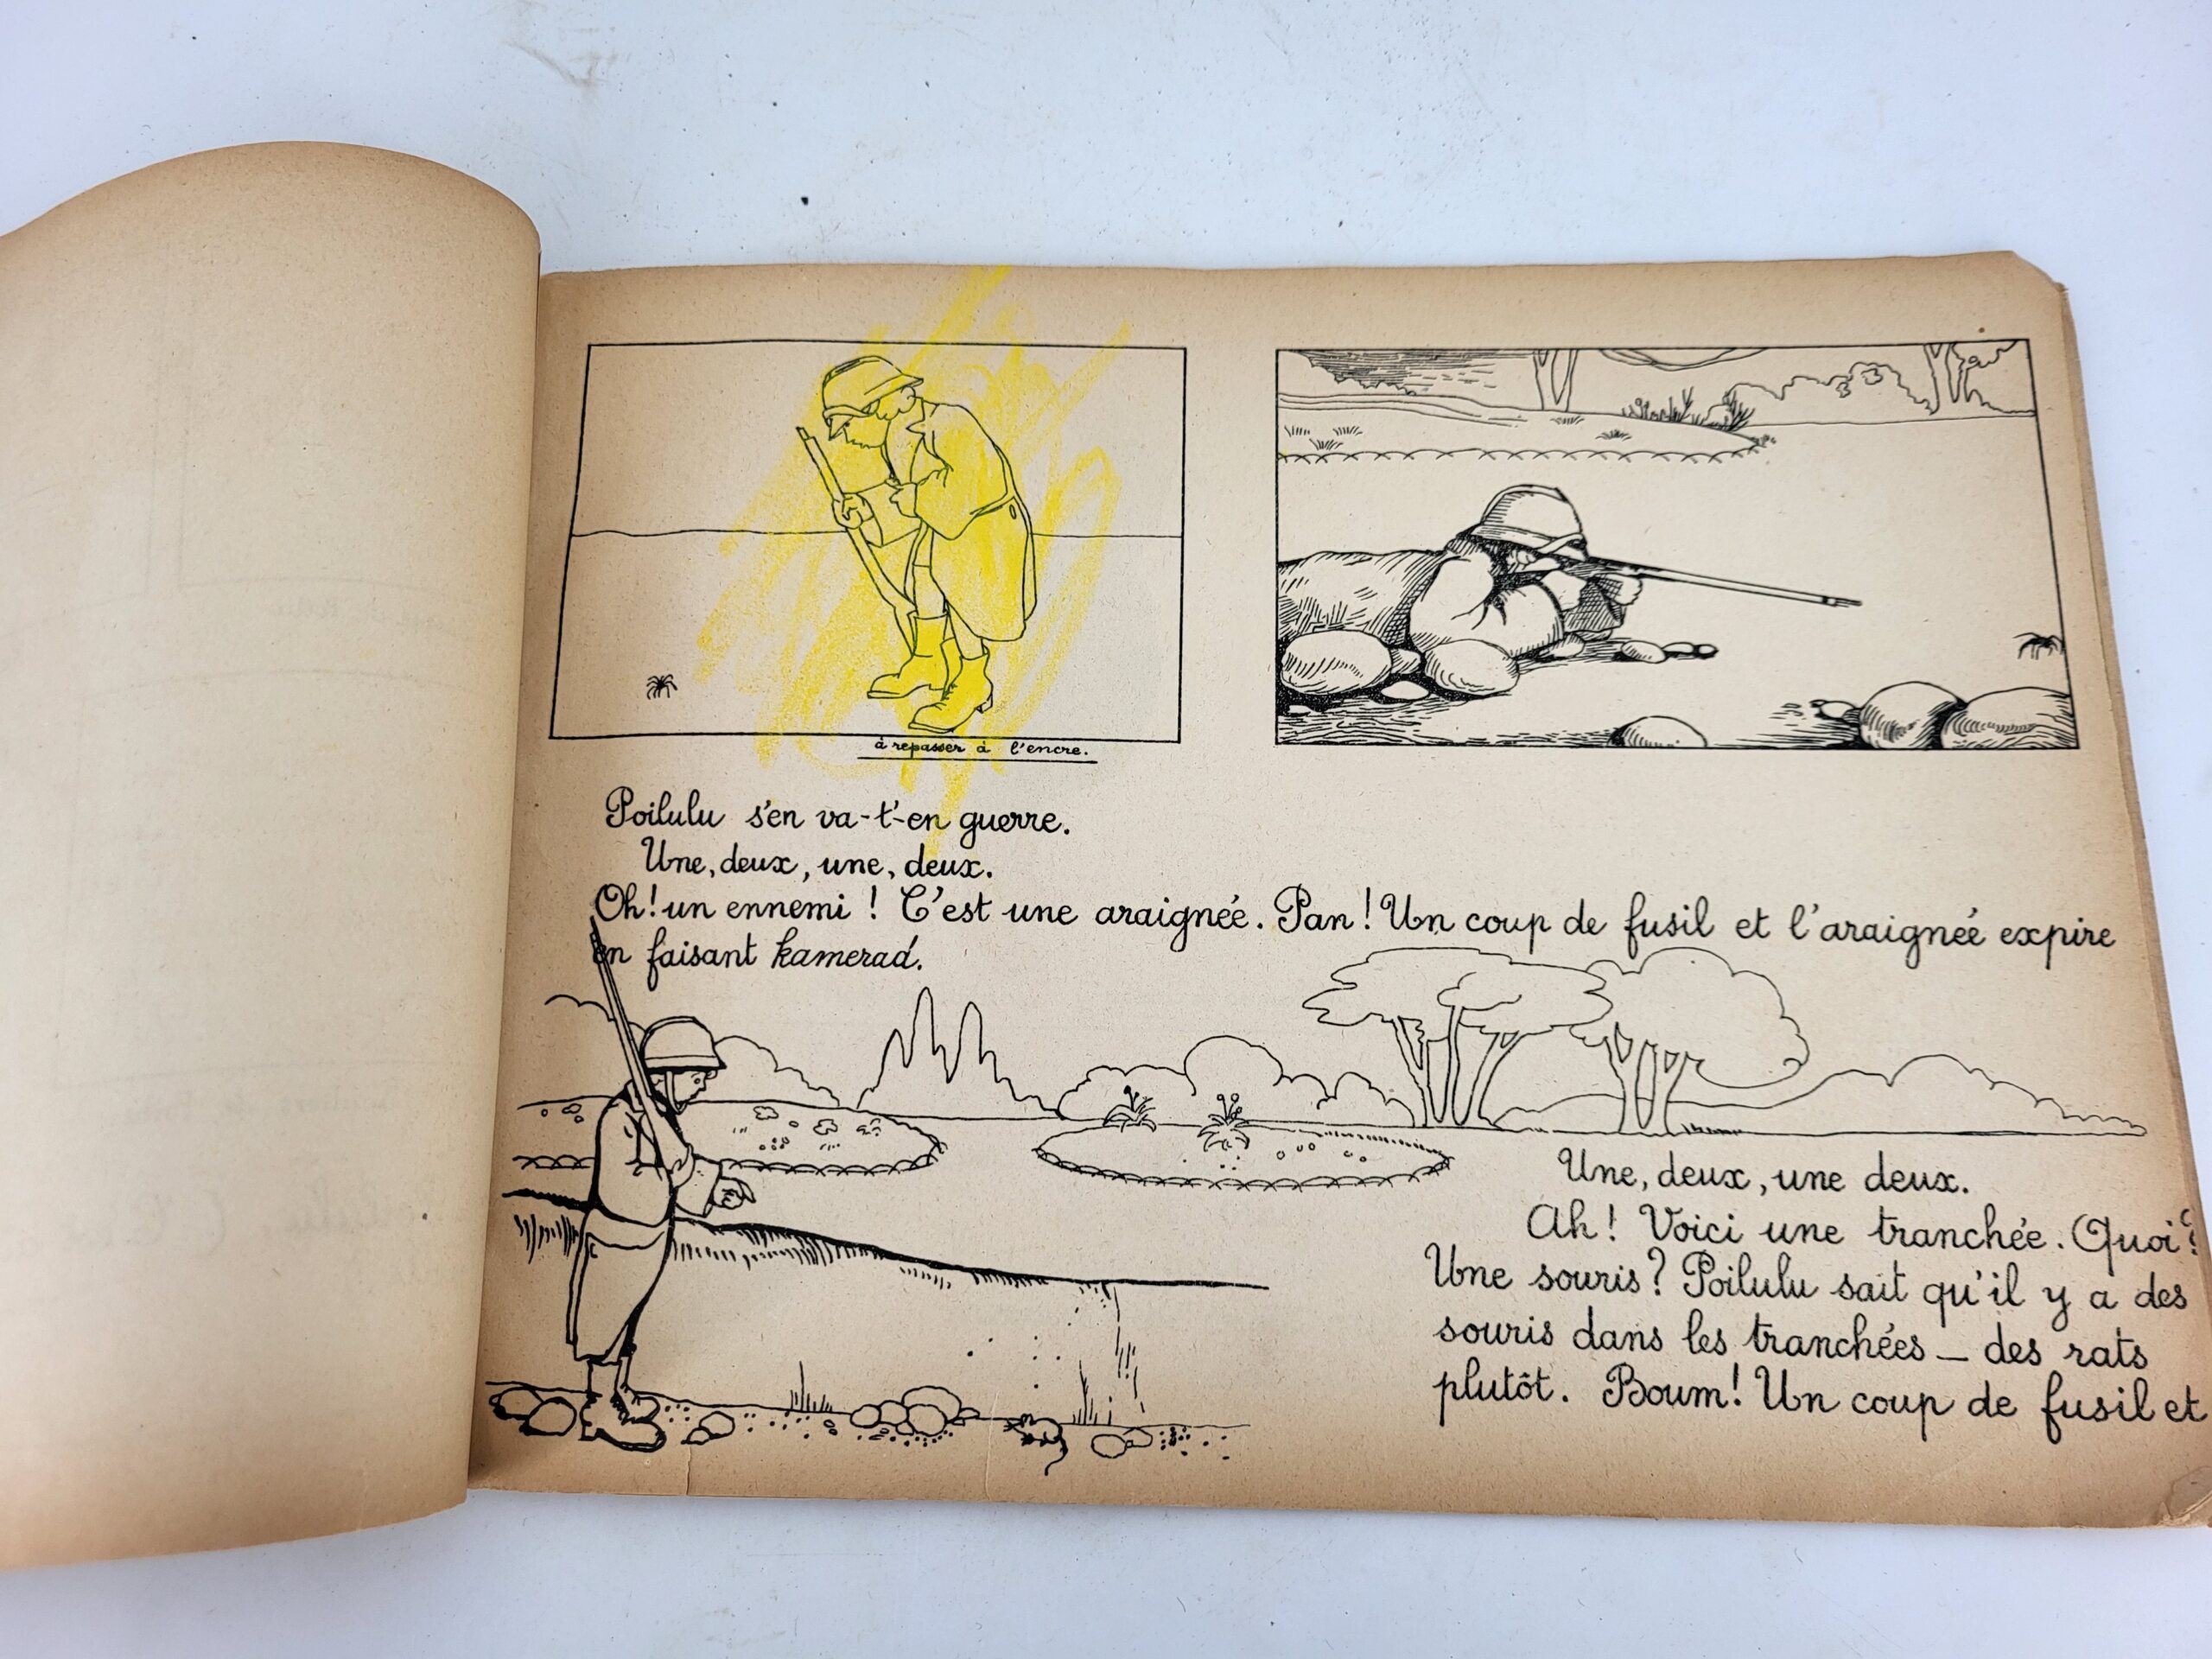 à repasser à l'encre.
Poilulu s'en va-t'-en guerre.
Une, deux, une, deux.
Oh! un ennemi ! C'est une araignée. Pan ! Un coup de fusil et l'araignée expire
en faisant kamerad.
Une, deux, une deux.
Ah ! Voici une tranchée. Quoi ?
Une souris ? Poilulu sait qu'il y a des
souris dans les tranchées — des rats
plutôt. Boum ! Un coup de fusil et